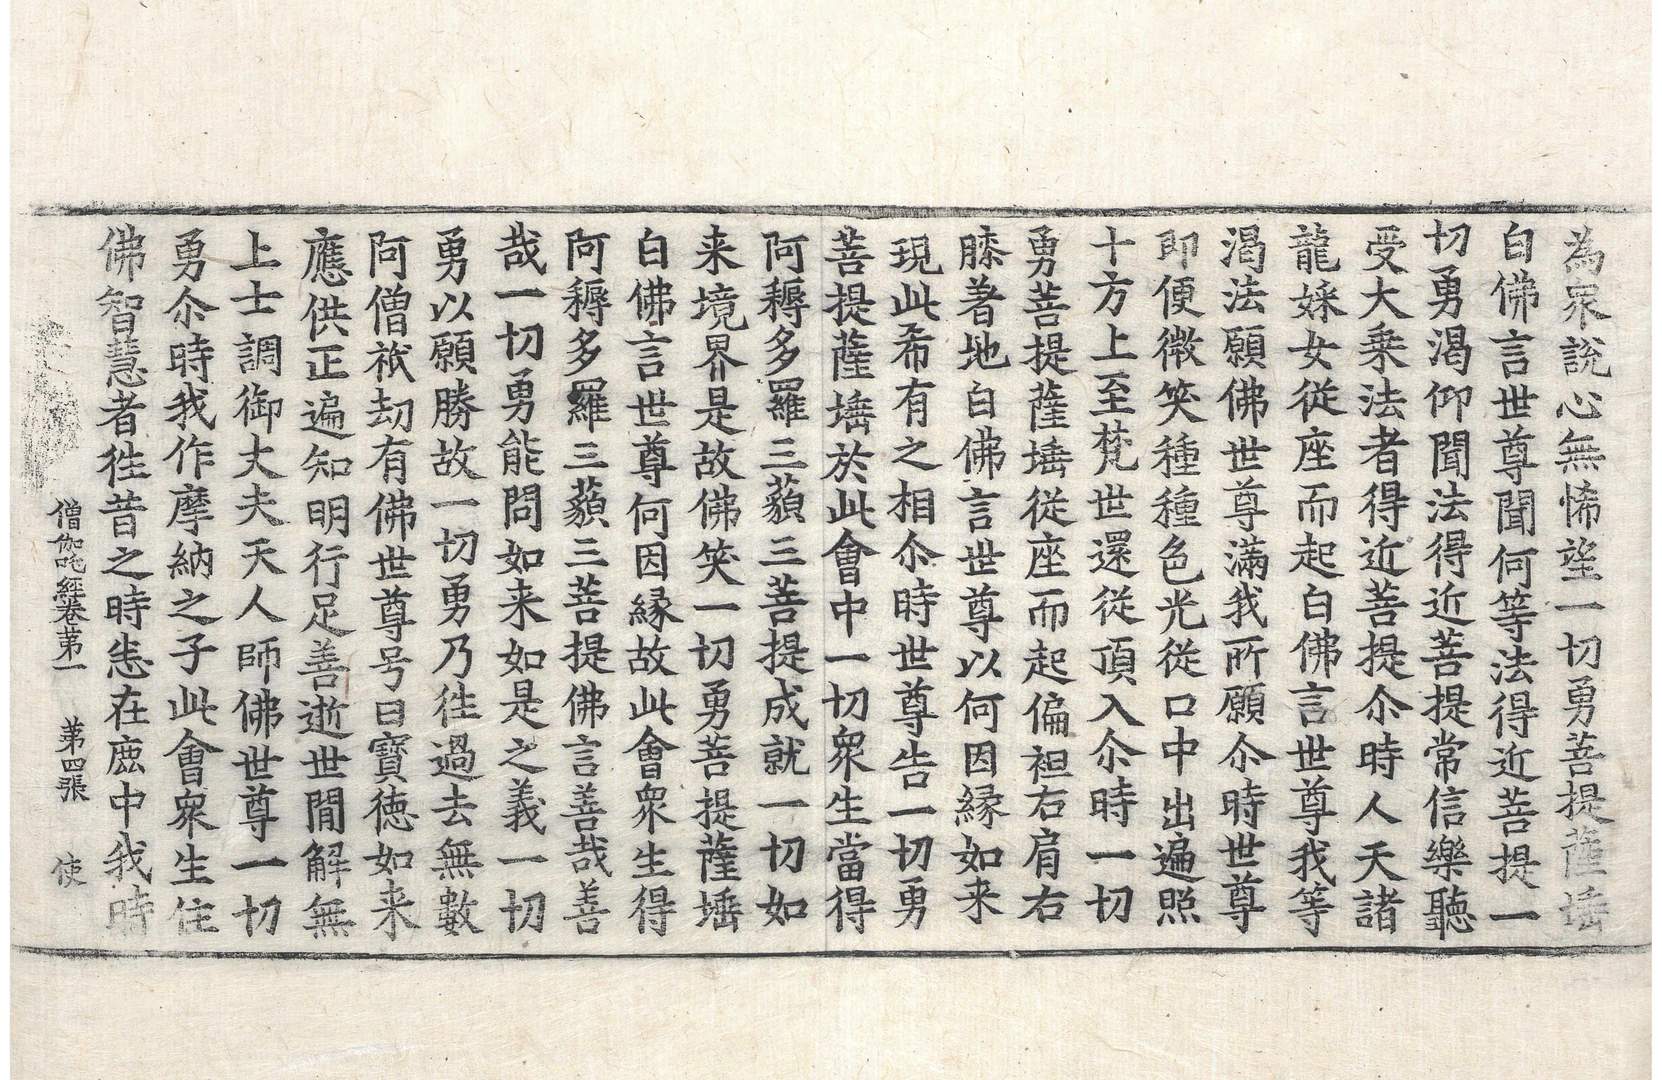 為衆說心無悕望一切勇菩提薩埵
白佛言世尊聞何等法得近菩提一
切勇渴仰聞法得近菩提常信樂聽
受大乗法者得近菩提尒時人天諸
龍婇女從座而起白佛言世尊我等
渴法願佛世尊滿我所願尒時世尊
即便微笑種種色光從口中出遍照
十方上至梵世還從頂入尒時一切
勇菩提薩埵從座而起偏袒右肩右
膝著地白佛言世尊以何因緣如来
現此希有之相尒時世尊告一切勇
菩提薩埵於此會中一切衆生當得
阿耨多羅三藐三菩提成就一切如
来境界是故佛笑一切勇菩提薩埵
白佛言世尊何因緣故此會衆生得
阿耨多羅三藐三菩提佛言善哉善
哉一切勇能問如来如是之義一切
勇以願勝故一切勇乃徃過去無數
阿僧祇劫有佛世尊号曰寶德如来
應供正遍知明行足善逝世間解無
上士調御丈夫天人師佛世尊一切
勇尒時我作摩納之子此會衆生住
佛智慧者徃昔之時悉在鹿中我時
僧伽吒經卷第一 第四張 使